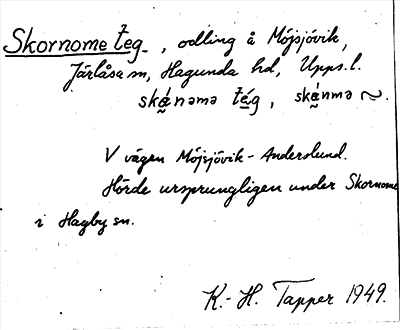 Skornome teg, odling å Möjsjövik,
Järlåsa sn, Hagunda hd, Upps. l.
skánəmə tég, skánmə ~.
V vägen Möjsjövik - Anderslund.
Hörde ursprungligen under Skornome
i Hagby sn.
K.-H. Tapper 1949.